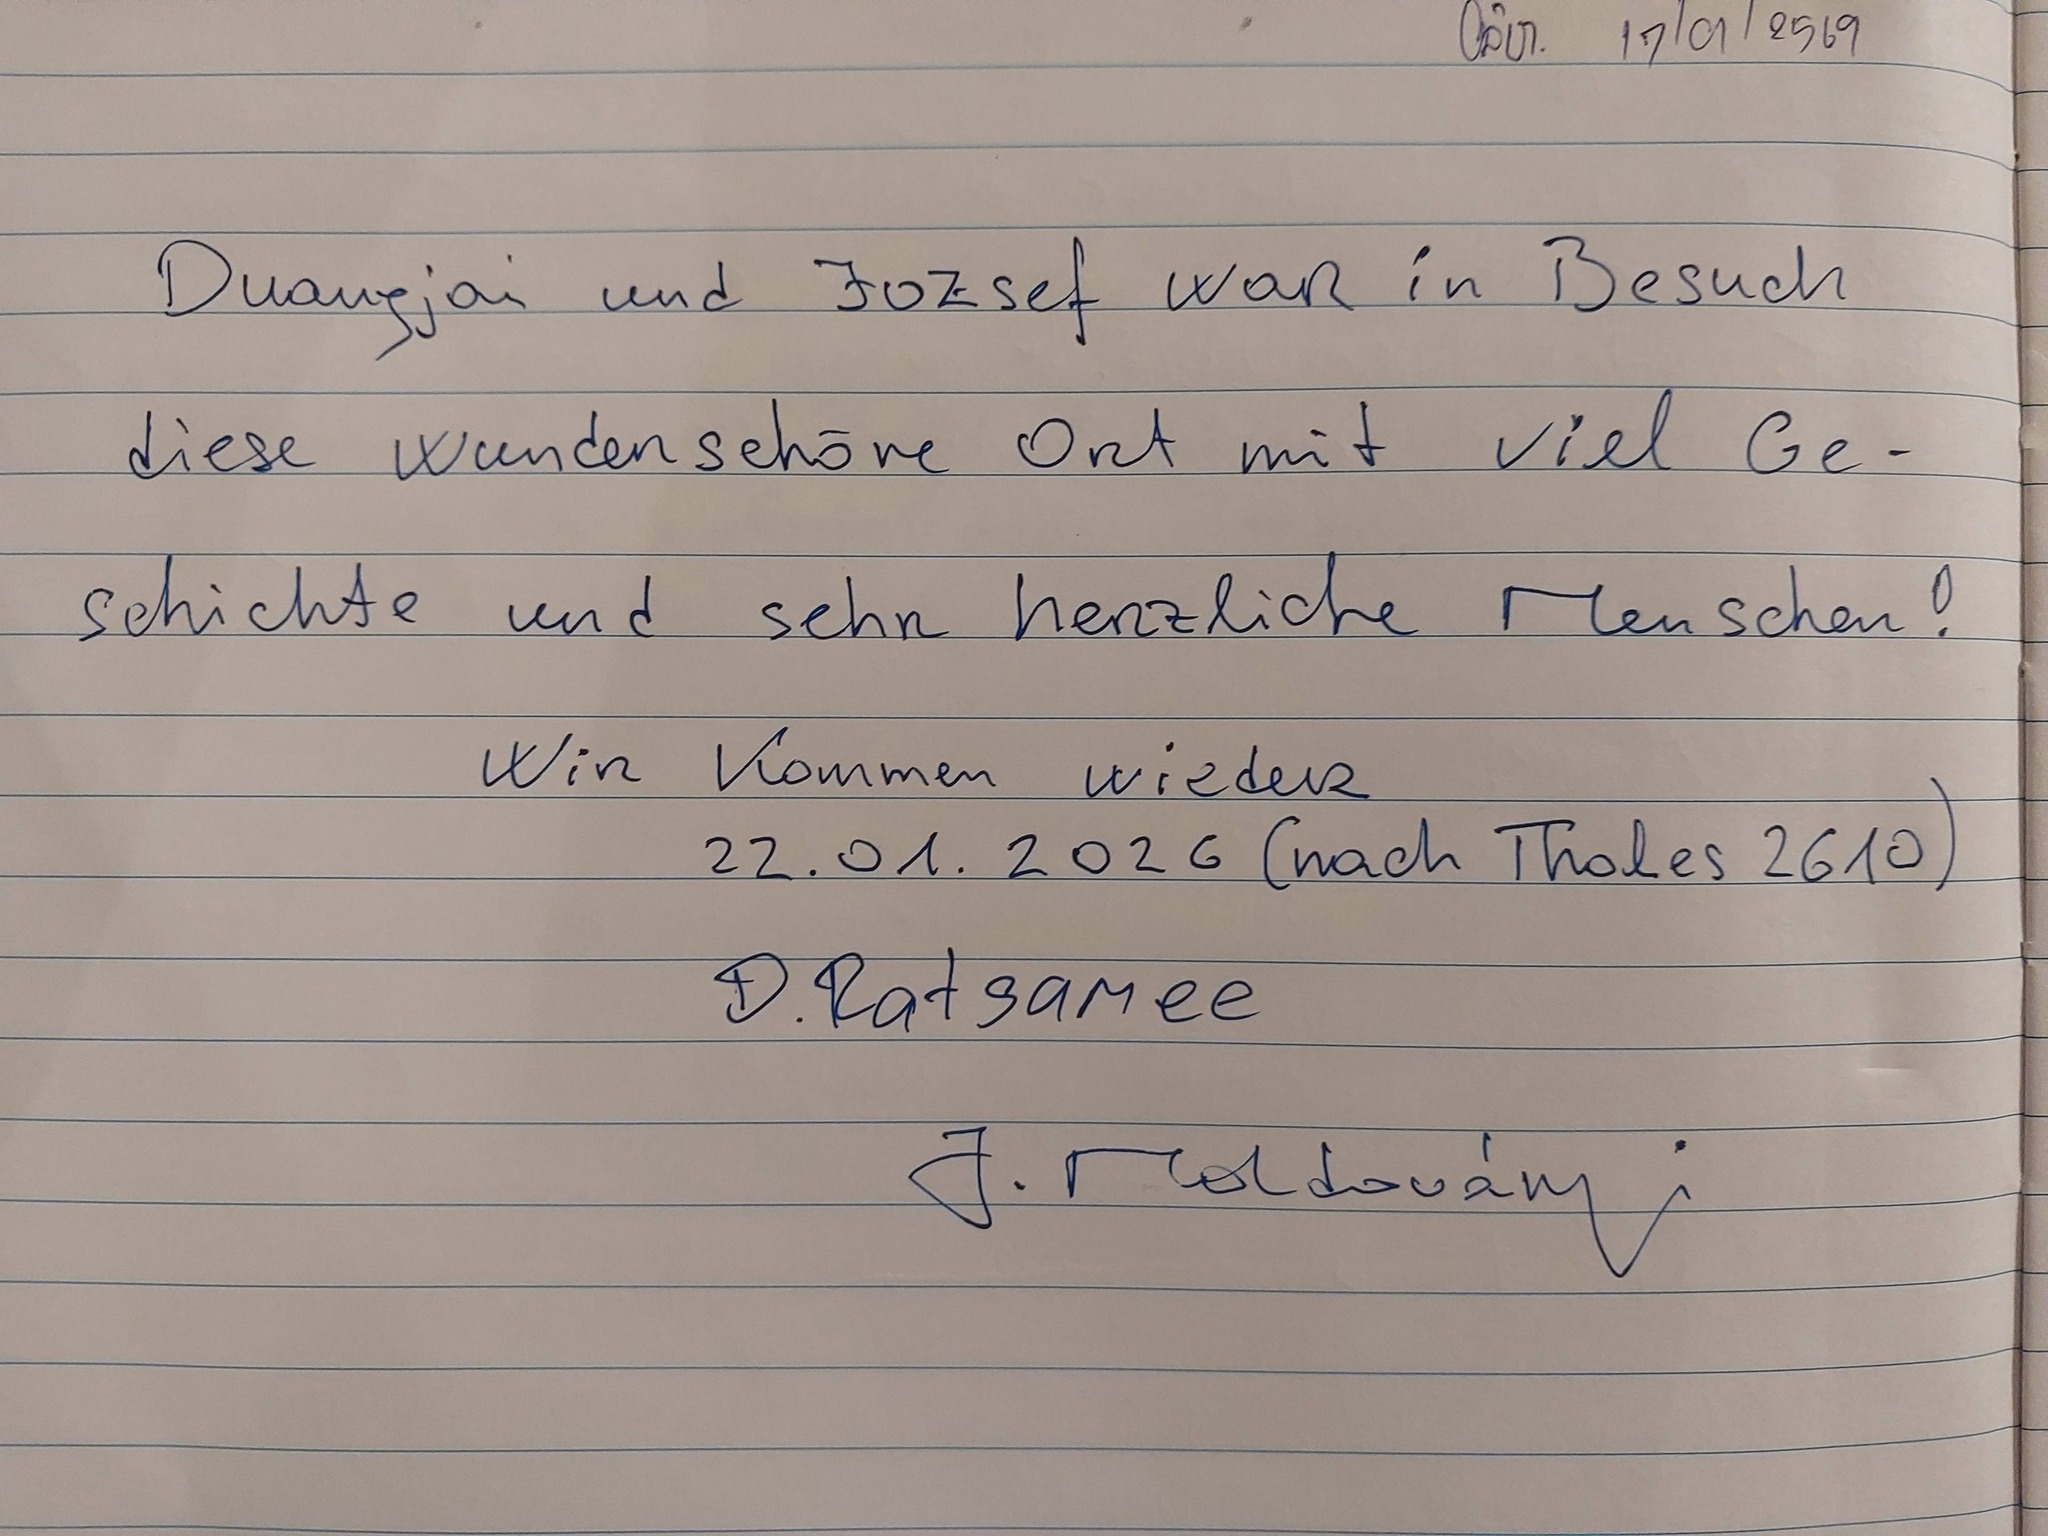 17/01/2569
Duangjai und József war in Besuch
diese wunderschöne Ort mit viel Ge-
schichte und sehr herzliche Menschen!
Wir kommen wieder
22.01.2026 (nach Thales 2610)
D. Ratsamee
J. Moldoványi